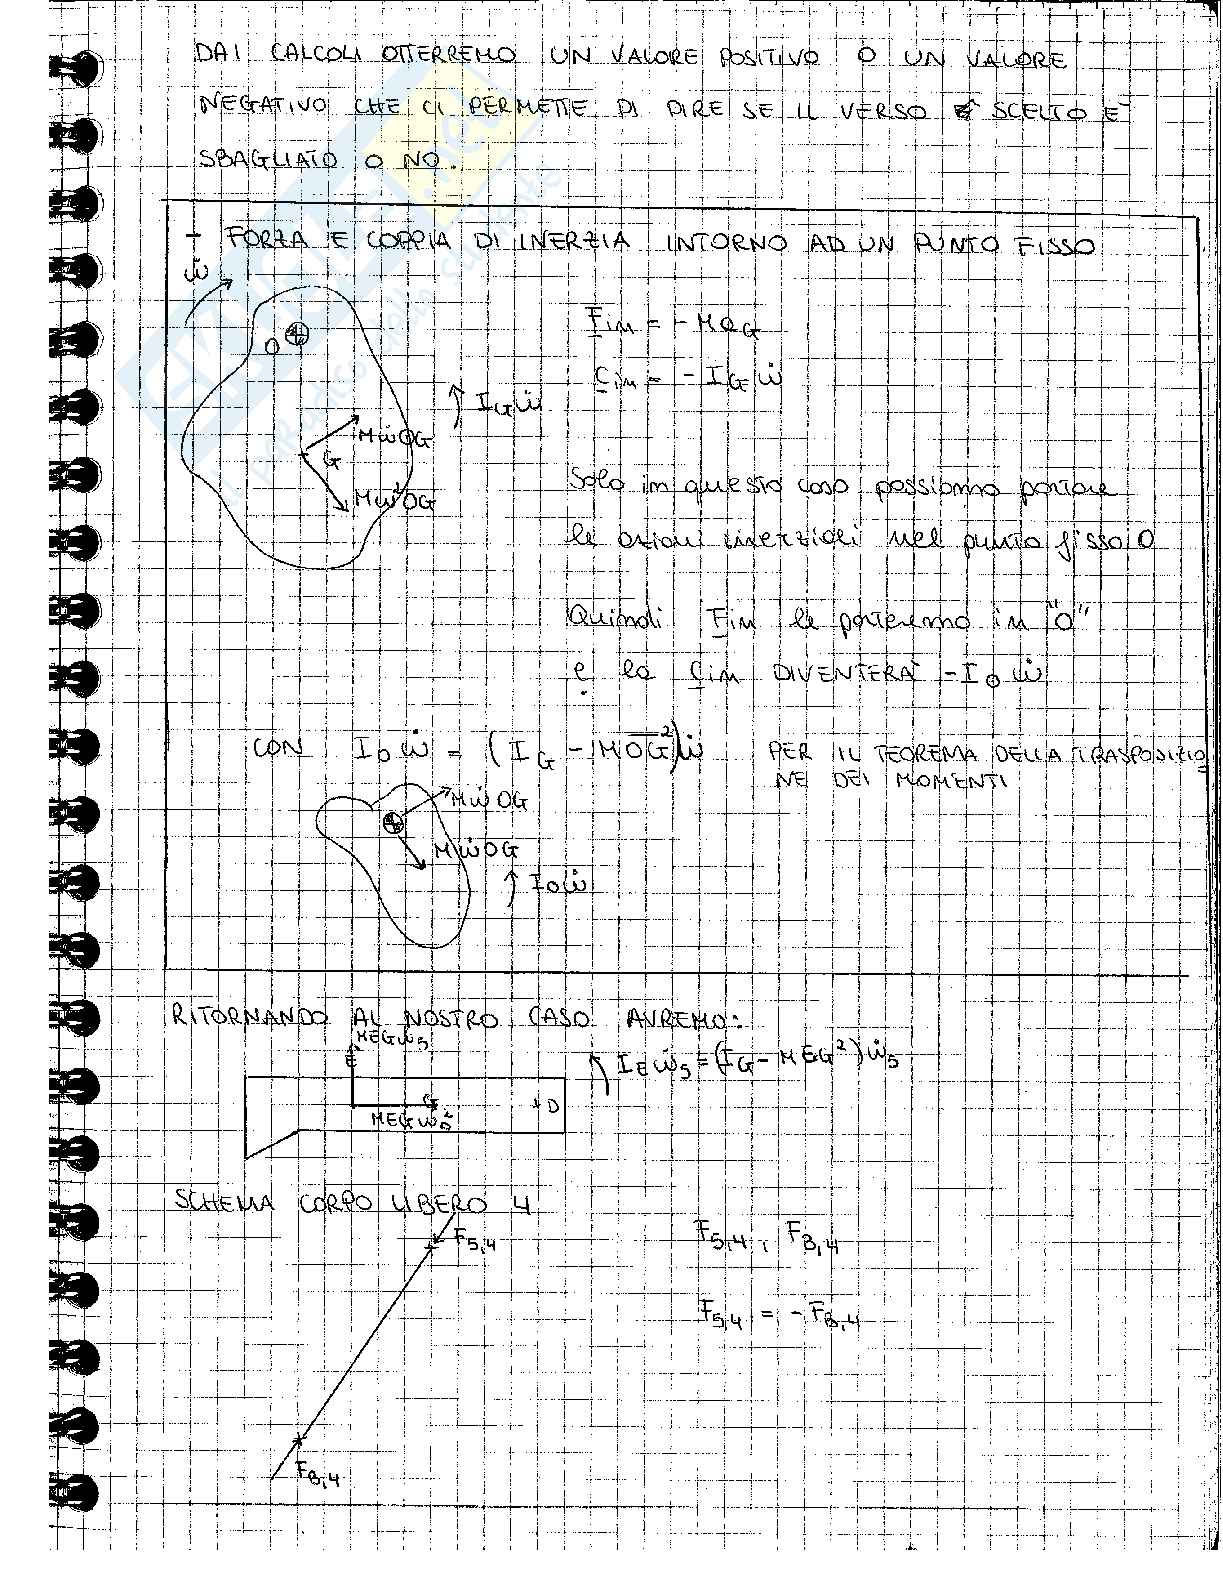 DAI CALCOLI OTTERREMO UN VALORE POSITIVO O UN VALORE
NEGATIVO CHE CI PERMETTE DI DIRE SE IL VERSO SCELTO È
SBAGLIATO O NO.
- FORZA E COPPIA DI INERZIA INTORNO AD UN PUNTO FISSO
ω̇
O
F̲in = -M a̲G
C̲in = -IG ω̇
IG ω̇
Mω̇OG
G
Mω²OG
Solo in questo caso possiamo portare
le azioni inerziali nel punto fisso O
Quindi F̲in le porteremo in "O"
e la C̲in DIVENTERÀ -IO ω̇
CON IO ω̇ = (IG - MOG²)ω̇ PER IL TEOREMA DELLA TRASPOSIZIO
NE DEI MOMENTI
Mω̇OG
Mω̇OG
IO ω̇
RITORNANDO AL NOSTRO CASO AVREMO:
MEGω̇5
E
IE ω̇5 = (IG - MEG²)ω̇5
G
D
MEGω5²
SCHEMA CORPO LIBERO 4
F5,4
F5,4 , FB,4
F5,4 = -FB,4
FB,4